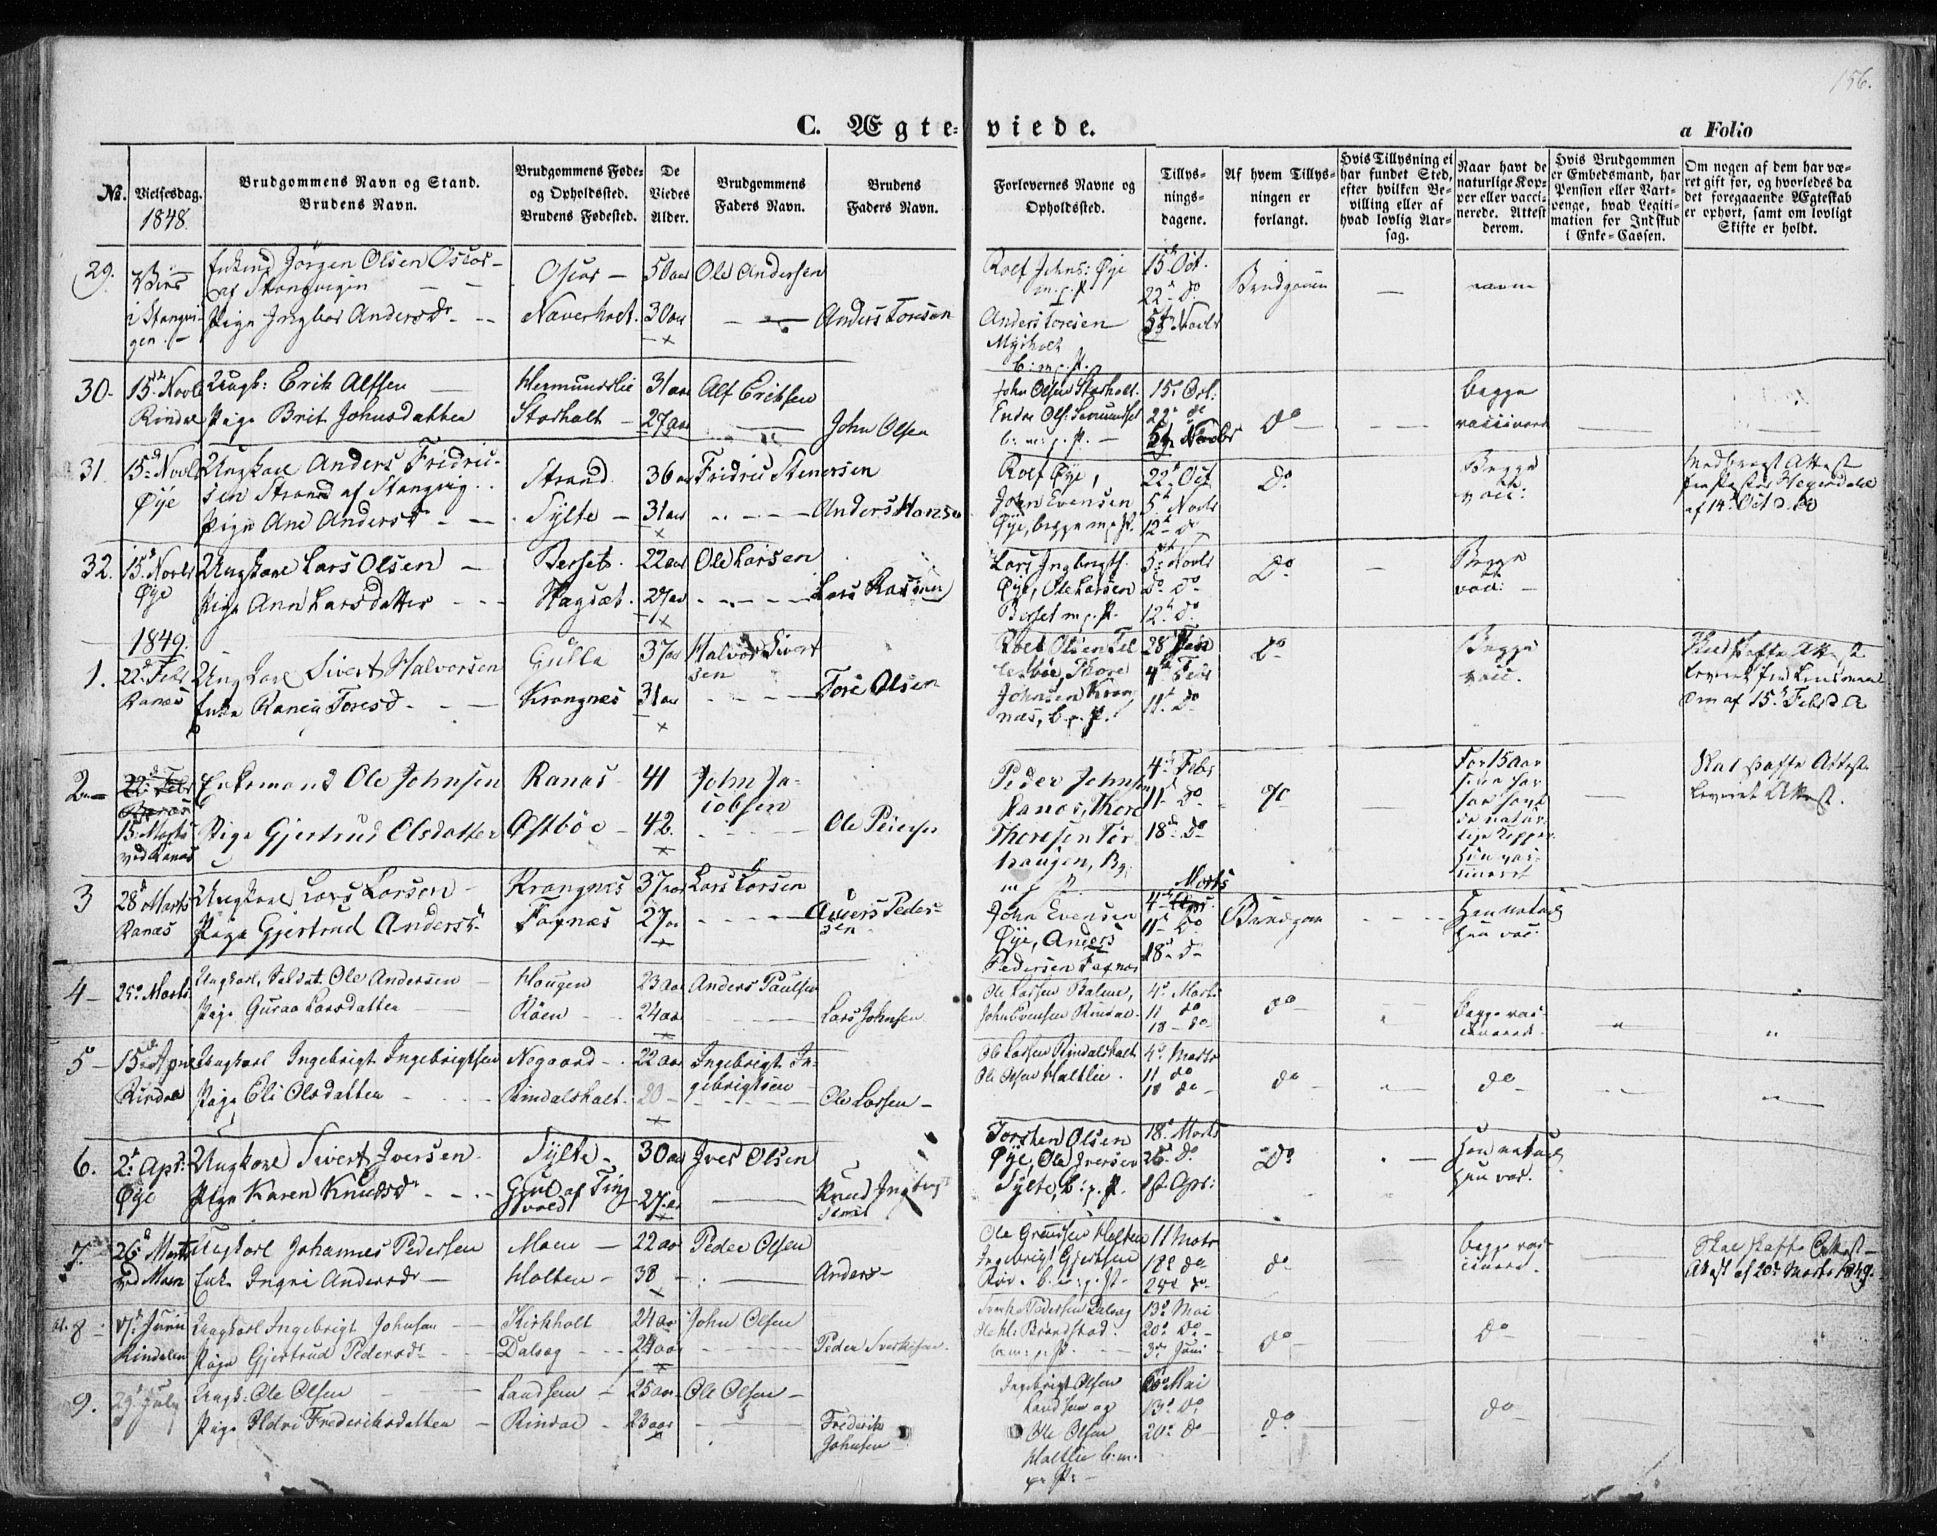 156.
C. Ægte= viede.
a Folio
No.
Vielsesdag.
1848.
Brudgommens Navn og Stand.
Brudens Navn.
Brudgommens Føde=
og Opholdsted.
Brudens Fødested.
De
Viedes
Alder.
Brudgommens
Faders Navn.
Brudens
Faders Navn.
Forlovernes Navne og
Opholdsted.
Tillys-
nings-
dagene.
Af hvem Tillys-
ningen er
forlangt.
Hvis Tillysning ei
har fundet Sted,
efter hvilken Be-
villing eller af
hvad lovlig Aar-
sag.
Naar havt de
naturlige Kop-
per eller vacci-
nerede. Attest
derom.
Hvis Brudgommen
er Embedsmand, har
Pension eller Vart-
penge, hvad Legiti-
mation for Indskud
i Enke=Cassen.
Om nogen af dem har væ-
ret gift før, og hvorledes da
det foregaaende Ægteskab
er ophørt, samt om lovligt
Skifte er holdt.
29.
i Stangvi-
gen
Enkemd Jörgen Olsen
af Stangvigen
Pige Ingbor Andersdr
50 aar
30 aar
Ole Andersen
Anders Toresen
Rolf Johns: Øye
m. p. P.
Anders Toresen
b. m. p. P.
15 Oct.
22 do
5 Novbr
Brudgomen
30.
15 Novb
Rindal
Ungk: Erik Alfsen
Pige Brit Johnsdatter
Hermundslie
Storholt
31 aar
27 aar
Alf Eriksen
John Olsen
John Olsen Storholt.
b: m: p. P.
15 Oct:
22 do
5 Novbr
do
begge
vaccinered
31.
15 Novb
Øye
Ungkarl Anders Fridric-
sen Strand af Stangvig
Pige Ane Andersd
Strand
Sylte
36 aar
31 aar
Fridric Stenersen
Anders Hansen
Rolf Øye,
John Evensen
Øye, begge m. p. P.
22 Oct
5 Novb
12 do
Do
Begge
vacc:
af 14 Oct d. A
32.
15 Novbr
Øye
Ungkarl Lars Olsen
Pige Ann Larsdatter
Berset
Hagset
22 aar
27 aar
Ole Larsen
Lars
Lars Ingbrigts.
Øye, Ole Larsen
Berset m. p. P.
5 Novbr
do do
12 do
Do
Begge
vacc:
1849.
1.
22 Febr
Ranæs
Ungkarl Sivert Halvorsen
Enke Toresd
Gulla
Krangnæs
37 aar
31 aar
Halvor Sivert
sen
Tore Olsen
Thore
Johnsen Krang
næs, b. p. P.
28 Jan
4 Febr
11 do
Do
Begge
vacc.
af 15 Febr d. A
2
22 Febr
Ranæs
15 Marts
ved Ranæs
Enkemand Ole Johnsen
Pige Gjertrud Olsdatter
Ranæs
Østbøe
41
42.
John Ja-
cobsen
Ole Pedersen
Peder Johnsen
Ranæs, Thore
Thoresen Tør
haugen, Bg.
m p P
4 Febr
11 do
18 do
do
For 15 Aar
Skal skifte Attest
leveret Attest.
3
28 Marts
Ranæs
Ungkarl Lars Larsen
Pige Gjertrud Andersd.
Krangnæs
Fagnæs
37 aar
27 aar
Lars Larsen
Anders Peder-
sen
John Evensen
Øye, Anders
Pedersen Fagnæs
Marts
4 Apr:
11 do
18 do
Brudgom
Han naturl
hun vac:
4
25 Marts
Ungkarl, Soldat Ole Andersen
Pige Guroe Larsdatter
Haugen
Röen
23 aar
24 aar
Anders Paulsen
Lars Johnsen
Ole Larsen Bolme,
John Evensen Rindal
4 Marts
11 do
18 do
do
begge vac-
cinered.
5
15 April
Rindal
Ungkarl Ingebrigt Ingebrigtsen
Pige Eli Olsdatter
Nogaard
Rindalsholt
22 aar
20
Ingebrigt In-
gebrigtsen
Ole Larsen
Ole Larsen Rindalsholt
Ole Olsen Holtlie.
4 Marts
11 do
18 do
do
do
6.
2 Apr:
Øye
Ungkarl Sivert Iversen
Pige Karen Knudsdr
Sylte
Gjul af Ting
vold
30 aar
27 ar
Iver Olsen
Knud Ingbrig
Torsten Olsen
Øye, Ole Iversen
Sylte, b: p. P.
18 Marts
25 do
1st Apr:
Do
Han naturl
hun vac.
7.
26 Marts
ved Moen
Ungkarl Johannes Pedersen
Enke Ingri Andersdr
Moen
Holten
22 aar
38
Peder Olsen
Anders
Ingebrigt Gjertsen
b. m: p. P.
11 Marts
18 do
25 do
do
begge vac-
cinered.
Skal skifte Attest
Attest af 20 Marts 1849.
8
Juni
Rindalen
Ungkarl Ingebrigt Johnsen
Pige Gjertrud Pedersdr
Kirkholt
Dalsæg
24 aar
24 aar
John Olsen
Peder Sverkesen
Sverke Pedersen Dalsæg
b: m: p. P.
13 Mai
20 do
3 Juni
do
do
9.
29 July
Ungk: Ole Olsen
Pige Ildri Frederiksdatter
Landsem
Rindal
25 aar
23 aar
Ole Olsen
Frederik
Johnsen
Ingebrigt Olsen
Landsem og
Ole Olsen
Holtlie b. m.
p. P:
Mai
13 do
20 do
do
do